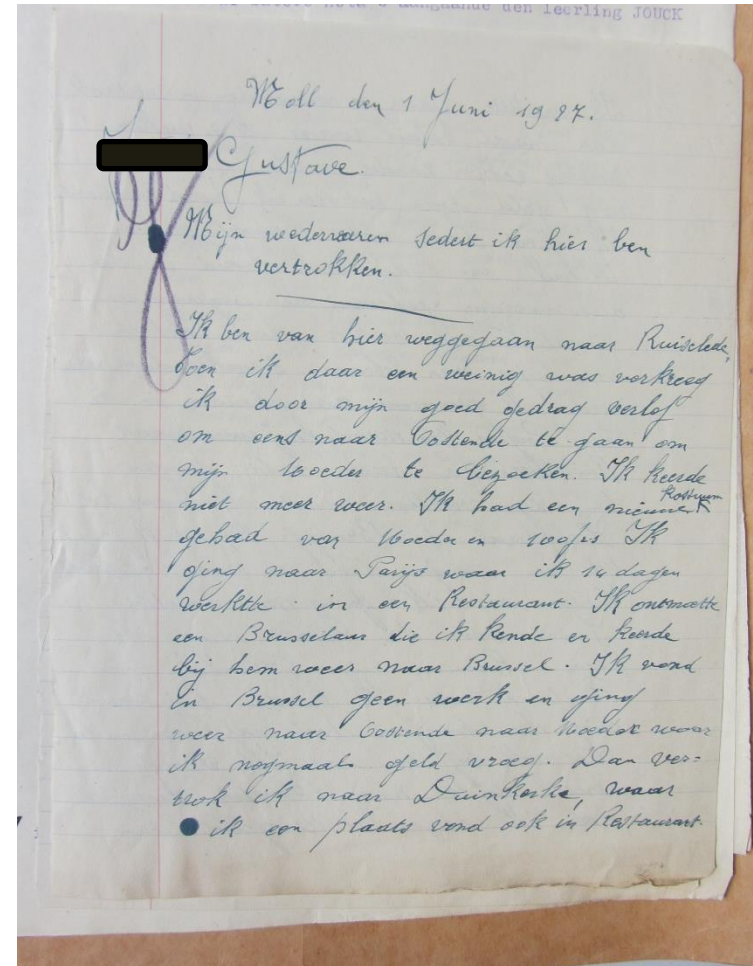 laatste nota's aangaande den leerling JOUCK
Moll den 1 Juni 1927.
Gustave.
Mijn wedervaren sedert ik hier ben
vertrokken.
Ik ben van hier weggegaan naar Ruiselede,
toen ik daar een weinig was verkreeg
ik door mijn goed gedrag verlof
om eens naar Oostende te gaan om
mijn Moeder te bezoeken. Ik keerde
niet meer weer. Ik had een nieuwe kostuum
gehad van Moeder en Ik
ging naar Parijs waar ik 14 dagen
werktte in een Restaurant. Ik ontmoette
een Brusselaar die ik kende en keerde
bij hem weer naar Brussel. Ik vond
in Brussel geen werk en ging
weer naar Oostende naar Moeder waar
ik nogmaals geld vroeg. Dan ver=
trok ik naar Duinkerke, waar
ik een plaats vond ook in Restaurant.